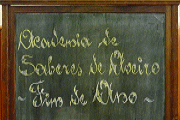 Academia de
Saberes de Aveiro
~ Fim de Ano ~